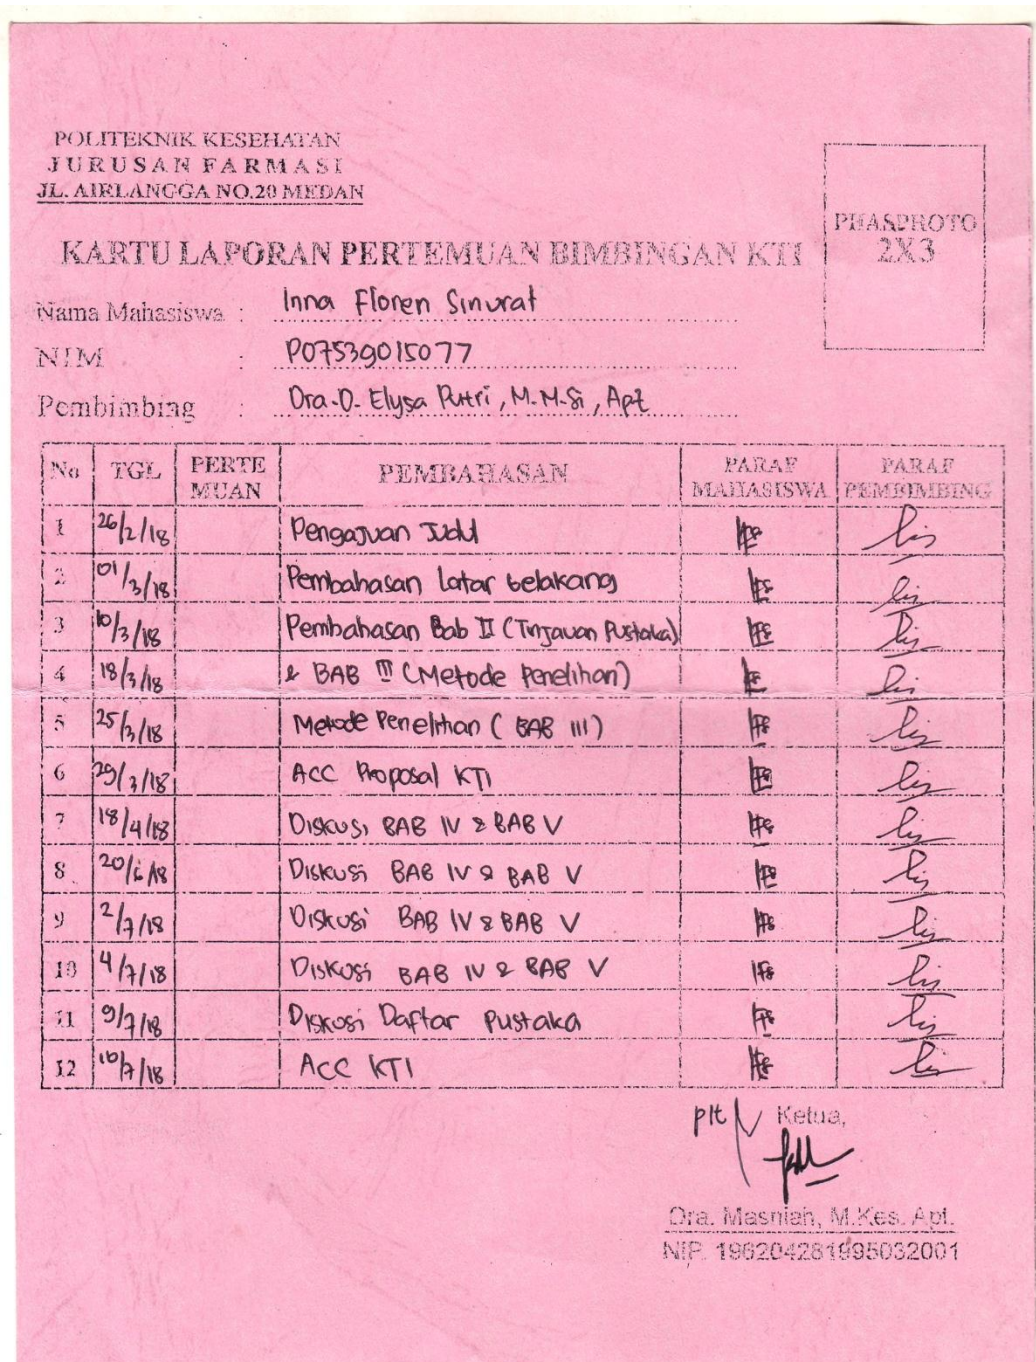 POLITEKNIK KESEHATAN
JURUSAN FARMASI
JL. AIRLANGGA NO.20 MEDAN
PHASPHOTO
2X3
KARTU LAPORAN PERTEMUAN BIMBINGAN KTI
Nama Mahasiswa : Inna Floren Sinurat
NIM : P07539015077
Pembimbing : Dra.D. Elysa Putri, M.M.Si, Apt
No TGL PERTE MUAN PEMBAHASAN PARAF MAHASISWA PARAF PEMBIMBING
1 26/2/18 Pengajuan Judul
2 01/3/18 Pembahasan Latar belakang
3 10/3/18 Pembahasan Bab II (Tinjauan Pustaka)
4 18/3/18 & BAB III (Metode Penelitian)
5 25/3/18 Metode Penelitian (BAB III)
6 29/3/18 ACC Proposal KTI
7 18/4/18 Diskusi BAB IV & BAB V
8 Diskusi BAB IV & BAB V
9 2/7/18 Diskusi BAB IV & BAB V
10 4/7/18 Diskusi BAB IV & BAB V
11 9/7/18 Diskusi Daftar Pustaka
12 10/7/18 ACC KTI
plt Ketua,
Dra. Masniah, M.Kes. Apt.
NIP. 196204281995032001